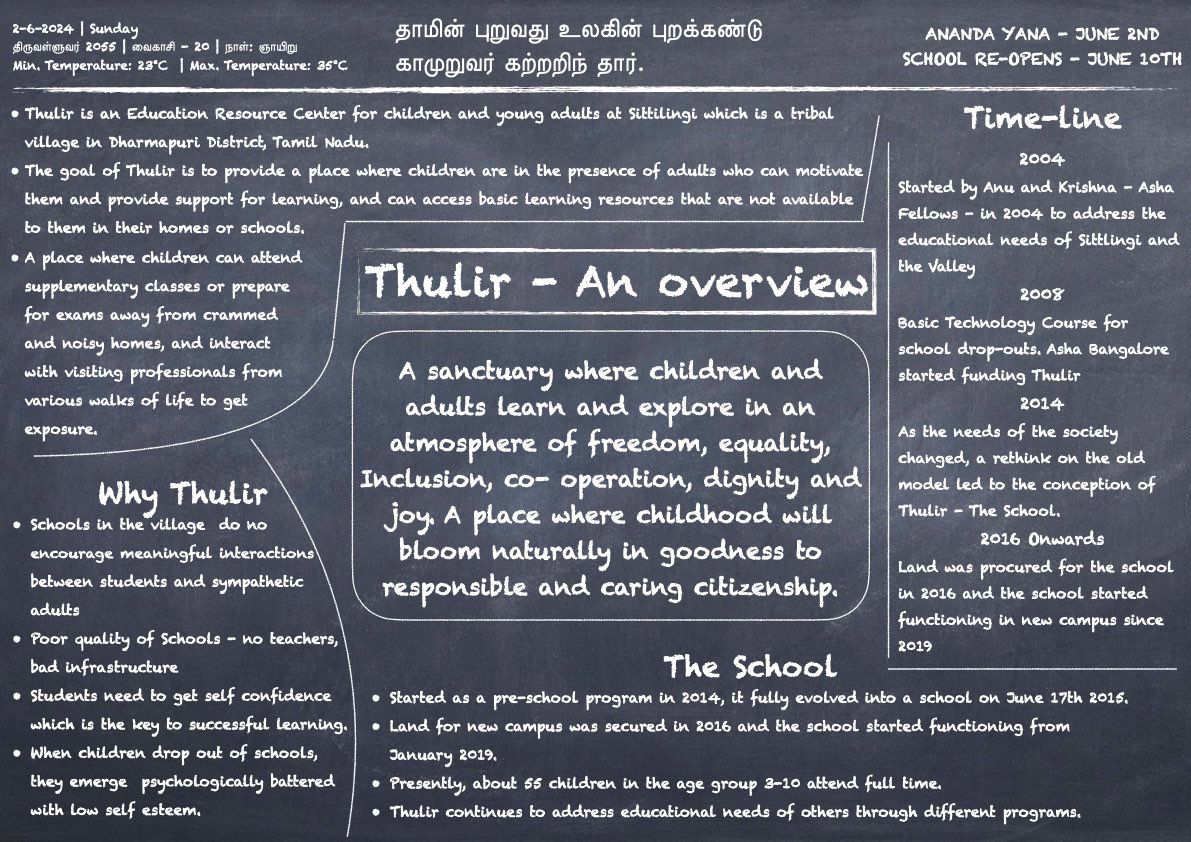 2-6-2024 | Sunday
திருவள்ளுவர் 2055 | வைகாசி - 20 | நாள்: ஞாயிறு
Min. Temperature: 23°C | Max. Temperature: 35°C
தாமின் புறுவது உலகின் புறக்கண்டு
காமுறுவர் கற்றறிந் தார்.
ANANDA YANA - JUNE 2ND
SCHOOL RE-OPENS - JUNE 10TH
• Thulir is an Education Resource Center for children and young adults at Sittilingi which is a tribal
village in Dharmapuri District, Tamil Nadu.
• The goal of Thulir is to provide a place where children are in the presence of adults who can motivate
them and provide support for learning, and can access basic learning resources that are not available
to them in their homes or schools.
• A place where children can attend
supplementary classes or prepare
for exams away from crammed
and noisy homes, and interact
with visiting professionals from
various walks of life to get
exposure.
Thulir - An overview
A sanctuary where children and
adults learn and explore in an
atmosphere of freedom, equality,
Inclusion, co- operation, dignity and
joy. A place where childhood will
bloom naturally in goodness to
responsible and caring citizenship.
Time-line
2004
Started by Anu and Krishna - Asha
Fellows - in 2004 to address the
educational needs of Sittlingi and
the Valley
2008
Basic Technology Course for
school drop-outs. Asha Bangalore
started funding Thulir
2014
As the needs of the society
changed, a rethink on the old
model led to the conception of
Thulir - The School.
2016 Onwards
Land was procured for the school
in 2016 and the school started
functioning in new campus since
2019
Why Thulir
• Schools in the village do no
encourage meaningful interactions
between students and sympathetic
adults
• Poor quality of Schools - no teachers,
bad infrastructure
• Students need to get self confidence
which is the key to successful learning.
• When children drop out of schools,
they emerge psychologically battered
with low self esteem.
The School
• Started as a pre-school program in 2014, it fully evolved into a school on June 17th 2015.
• Land for new campus was secured in 2016 and the school started functioning from
January 2019.
• Presently, about 55 children in the age group 3-10 attend full time.
• Thulir continues to address educational needs of others through different programs.